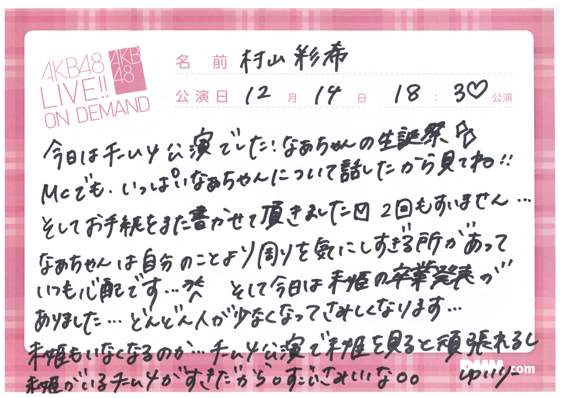 AKB48
LIVE!!
ON DEMAND
AKB
48
名前 村山彩希
公演日 12月14日 18:30公演
今日はチーム4公演でした!なぁちゃんの生誕祭
MCでも、いっぱいなぁちゃんについて話したから見てね!!
そしてお手紙をまた書かせて頂きました♡ 2回もすいません…
なぁちゃんは自分のことより周りを気にしすぎる所があって
いつも心配です… そして今日は未姫の卒業発表が
ありました…どんどん人が少なくなってさみしくなります…
未姫もいなくなるのか…チーム4公演で未姫を見ると頑張れるし
未姫がいるチーム4がすきだから。すごいさみしいな。。 ゆいりー
DMM.com